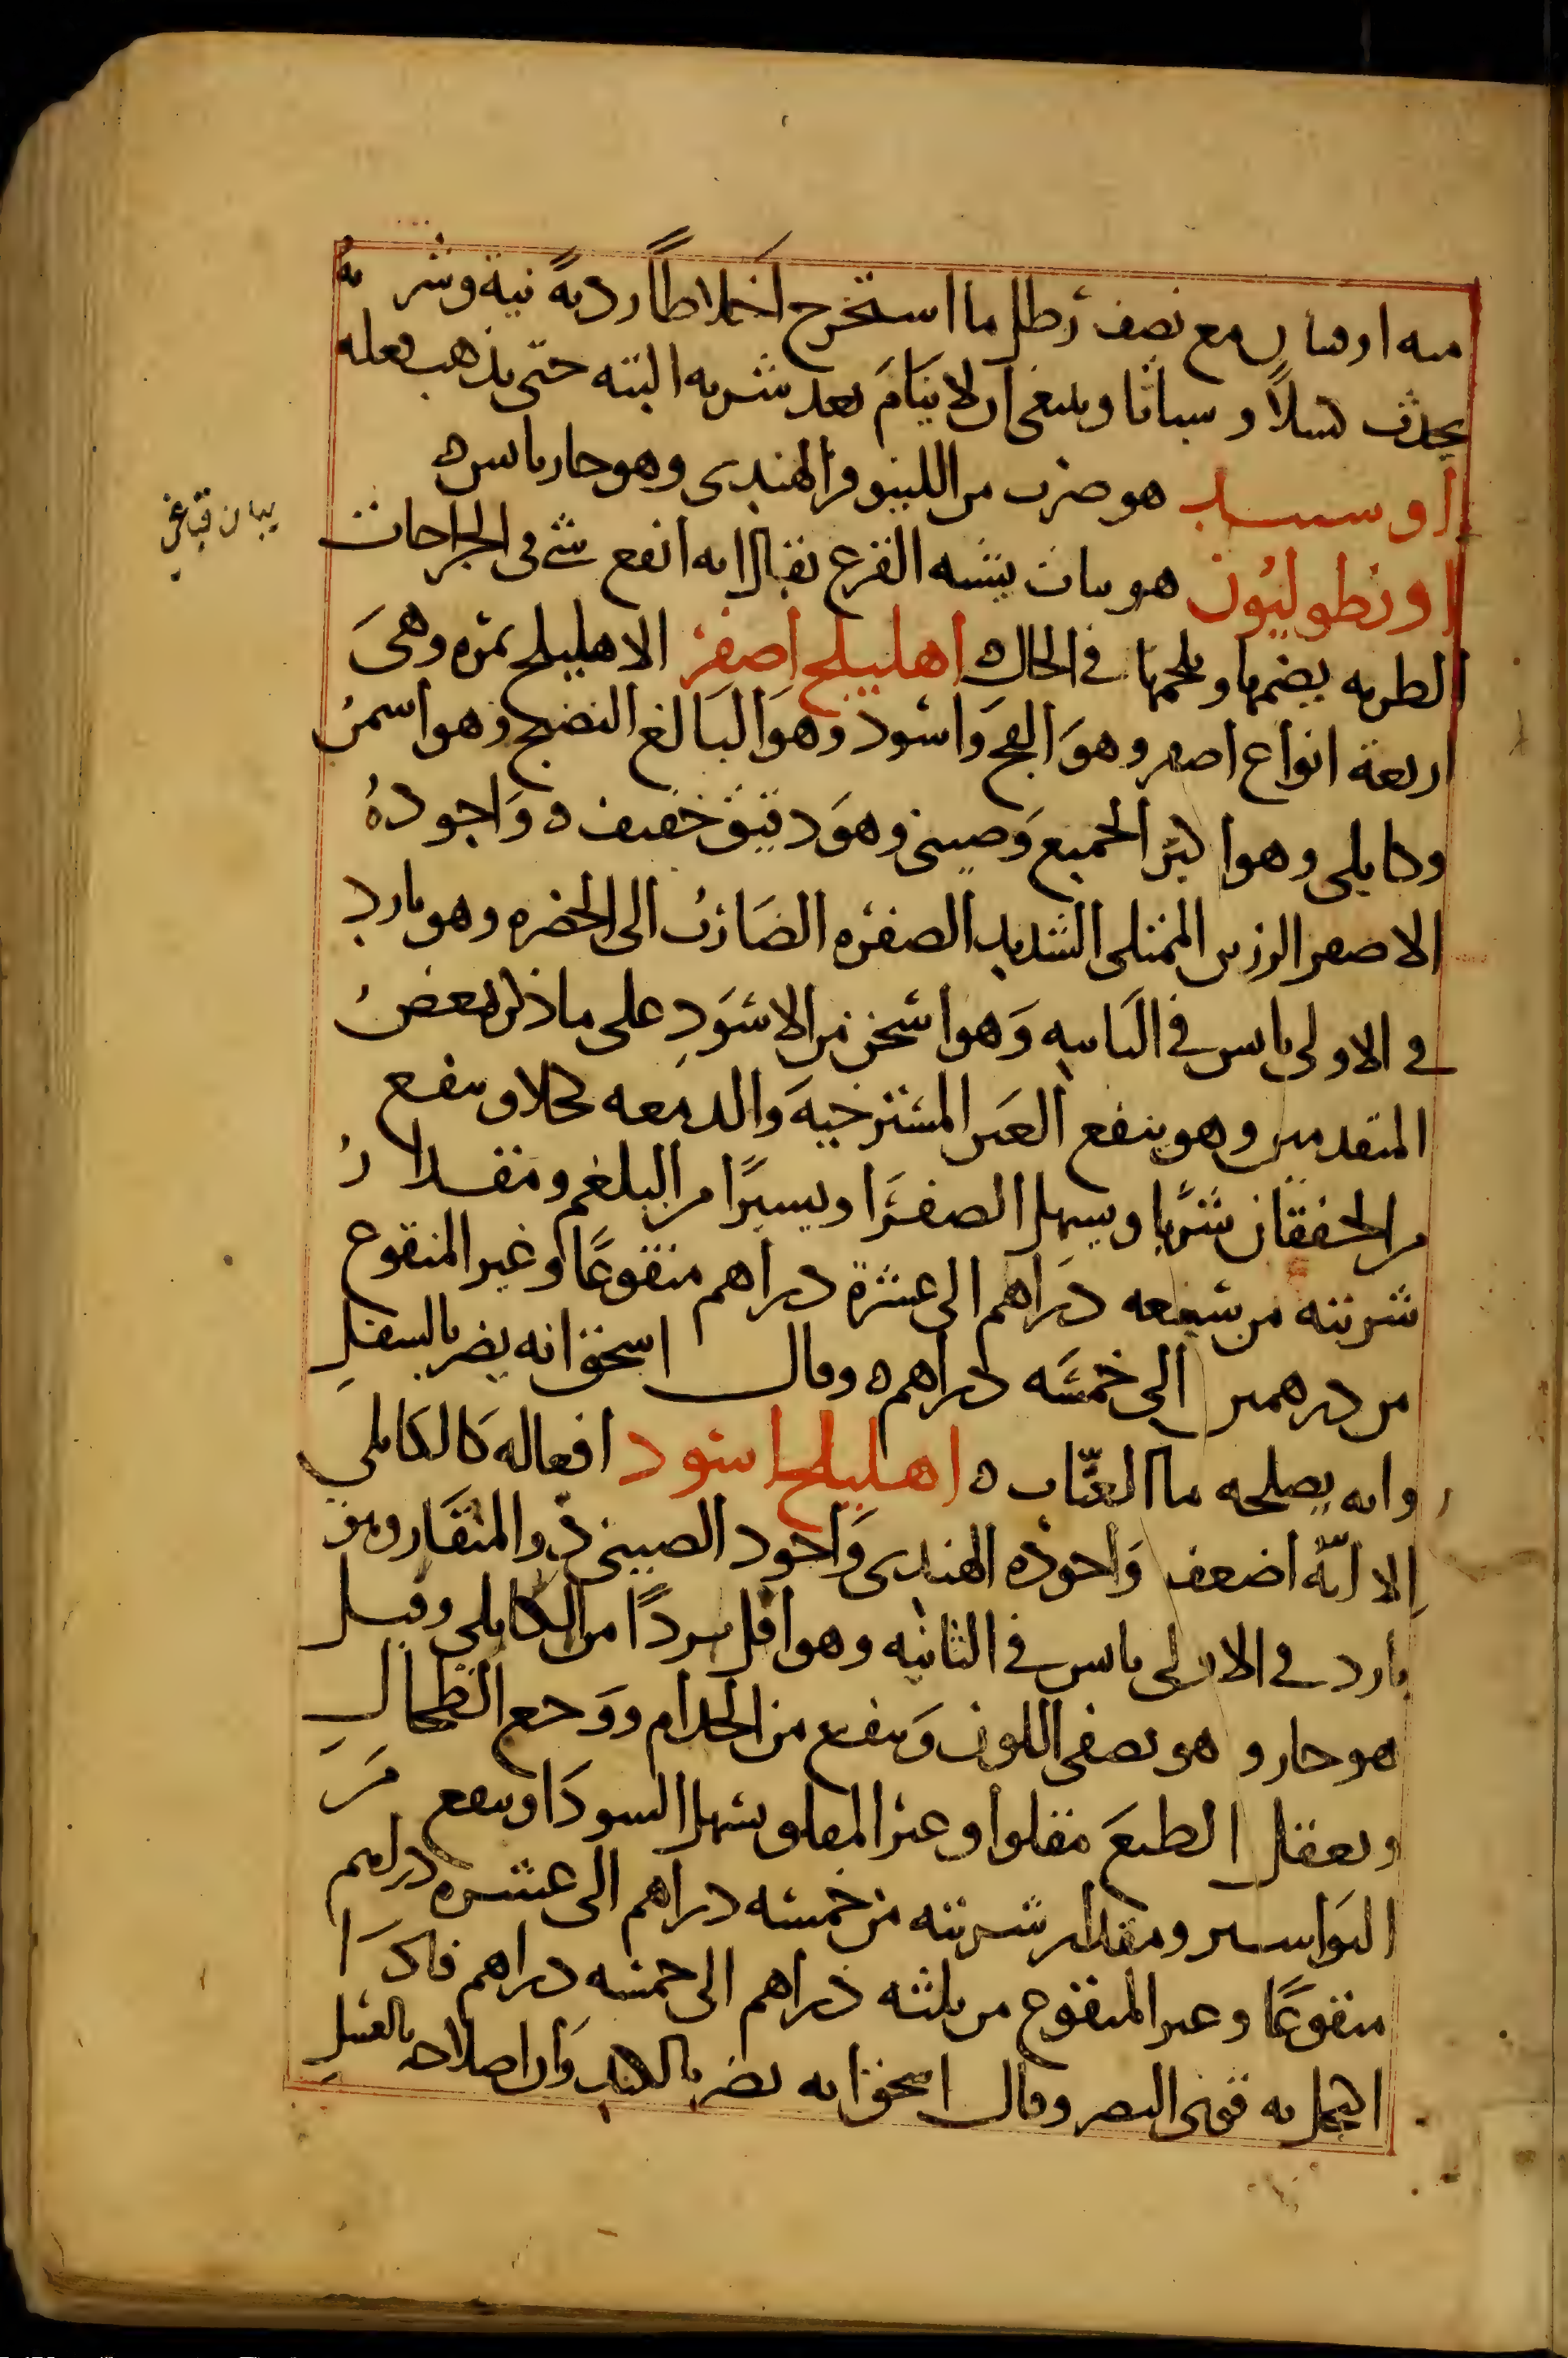 منه اوقيتان مع نصف رطل ما استخرج اخلاطاً رديةً نية وشربه
يحدث كسلاً و سباتا وينبغى ان لا ينَامَ بعد شربه البته حتى يذهب فعله
اوسبيد هو ضرب من اللينوفر الهندى وهو حار يابس ه
اونطوليون هو نبات يشبه القرع يقال انه انفع شى فى الجراحات
الطريه يضمها ويلحمها فى الحال ه اهليلج اصفر الاهليلج ثمره وهىَ
اربعة انواع اصفر وهوَ الفج وَاسود وهوَ البَالغ النضج وهو اسمرُ
وكابلى وهو اكبر الجميع وَصينى وهوَ دقيق خفيف ه وَاجودهُ
الاصفر الرزين الممتلى الشديد الصفره الضَارب الى الخضره وهو بارد
فى الاولى يابس فى الثانيه وَهو اسخن من الاسوَدِ على ما ذكر بعضُ
المتقدمين وهو ينفع العَين المسترخيهَ وَالدمعه كحلا وينفع
من الخفقان شرًبا ويسهل الصفرَا ويسيرًا من البلغم ومقدارُ
شربته من سبعه درَاهم الى عشرة دراهم منقوعًا وغير المنقوع
من درهمين الى خمسَه دراهم ه وقال اسحق انه يضر بالسفلِ
وانه يصلحه ما العنّاب ه اهليلج اسود افعاله كَالكَابلي
اِلا انّهُ اضعف وَاجوده الهندى وَاجود الصينى ذو المنقَار وهو
بارد فى الاولى يابس فى الثانيه وهو اقل بردًا من الكابلى وقيل
هو حار و هو يصفى اللون وَينفع من الجذام ووَجع الطحالِ
ويعقل الطبعَ مقلوا وغير المقلو يسهل السودَا وينفع مَن
البَواسير ومقدار شربته من خمسه دراهم الى عشره دراهم
منقوعًا وغير المنقوع من ثلثه دراهم الى خمسه دراهم فاذَا
اكتحل به قوى البصر وقال اسحق انه يضر بالكبد وَان اصلاحه بالعسلِ